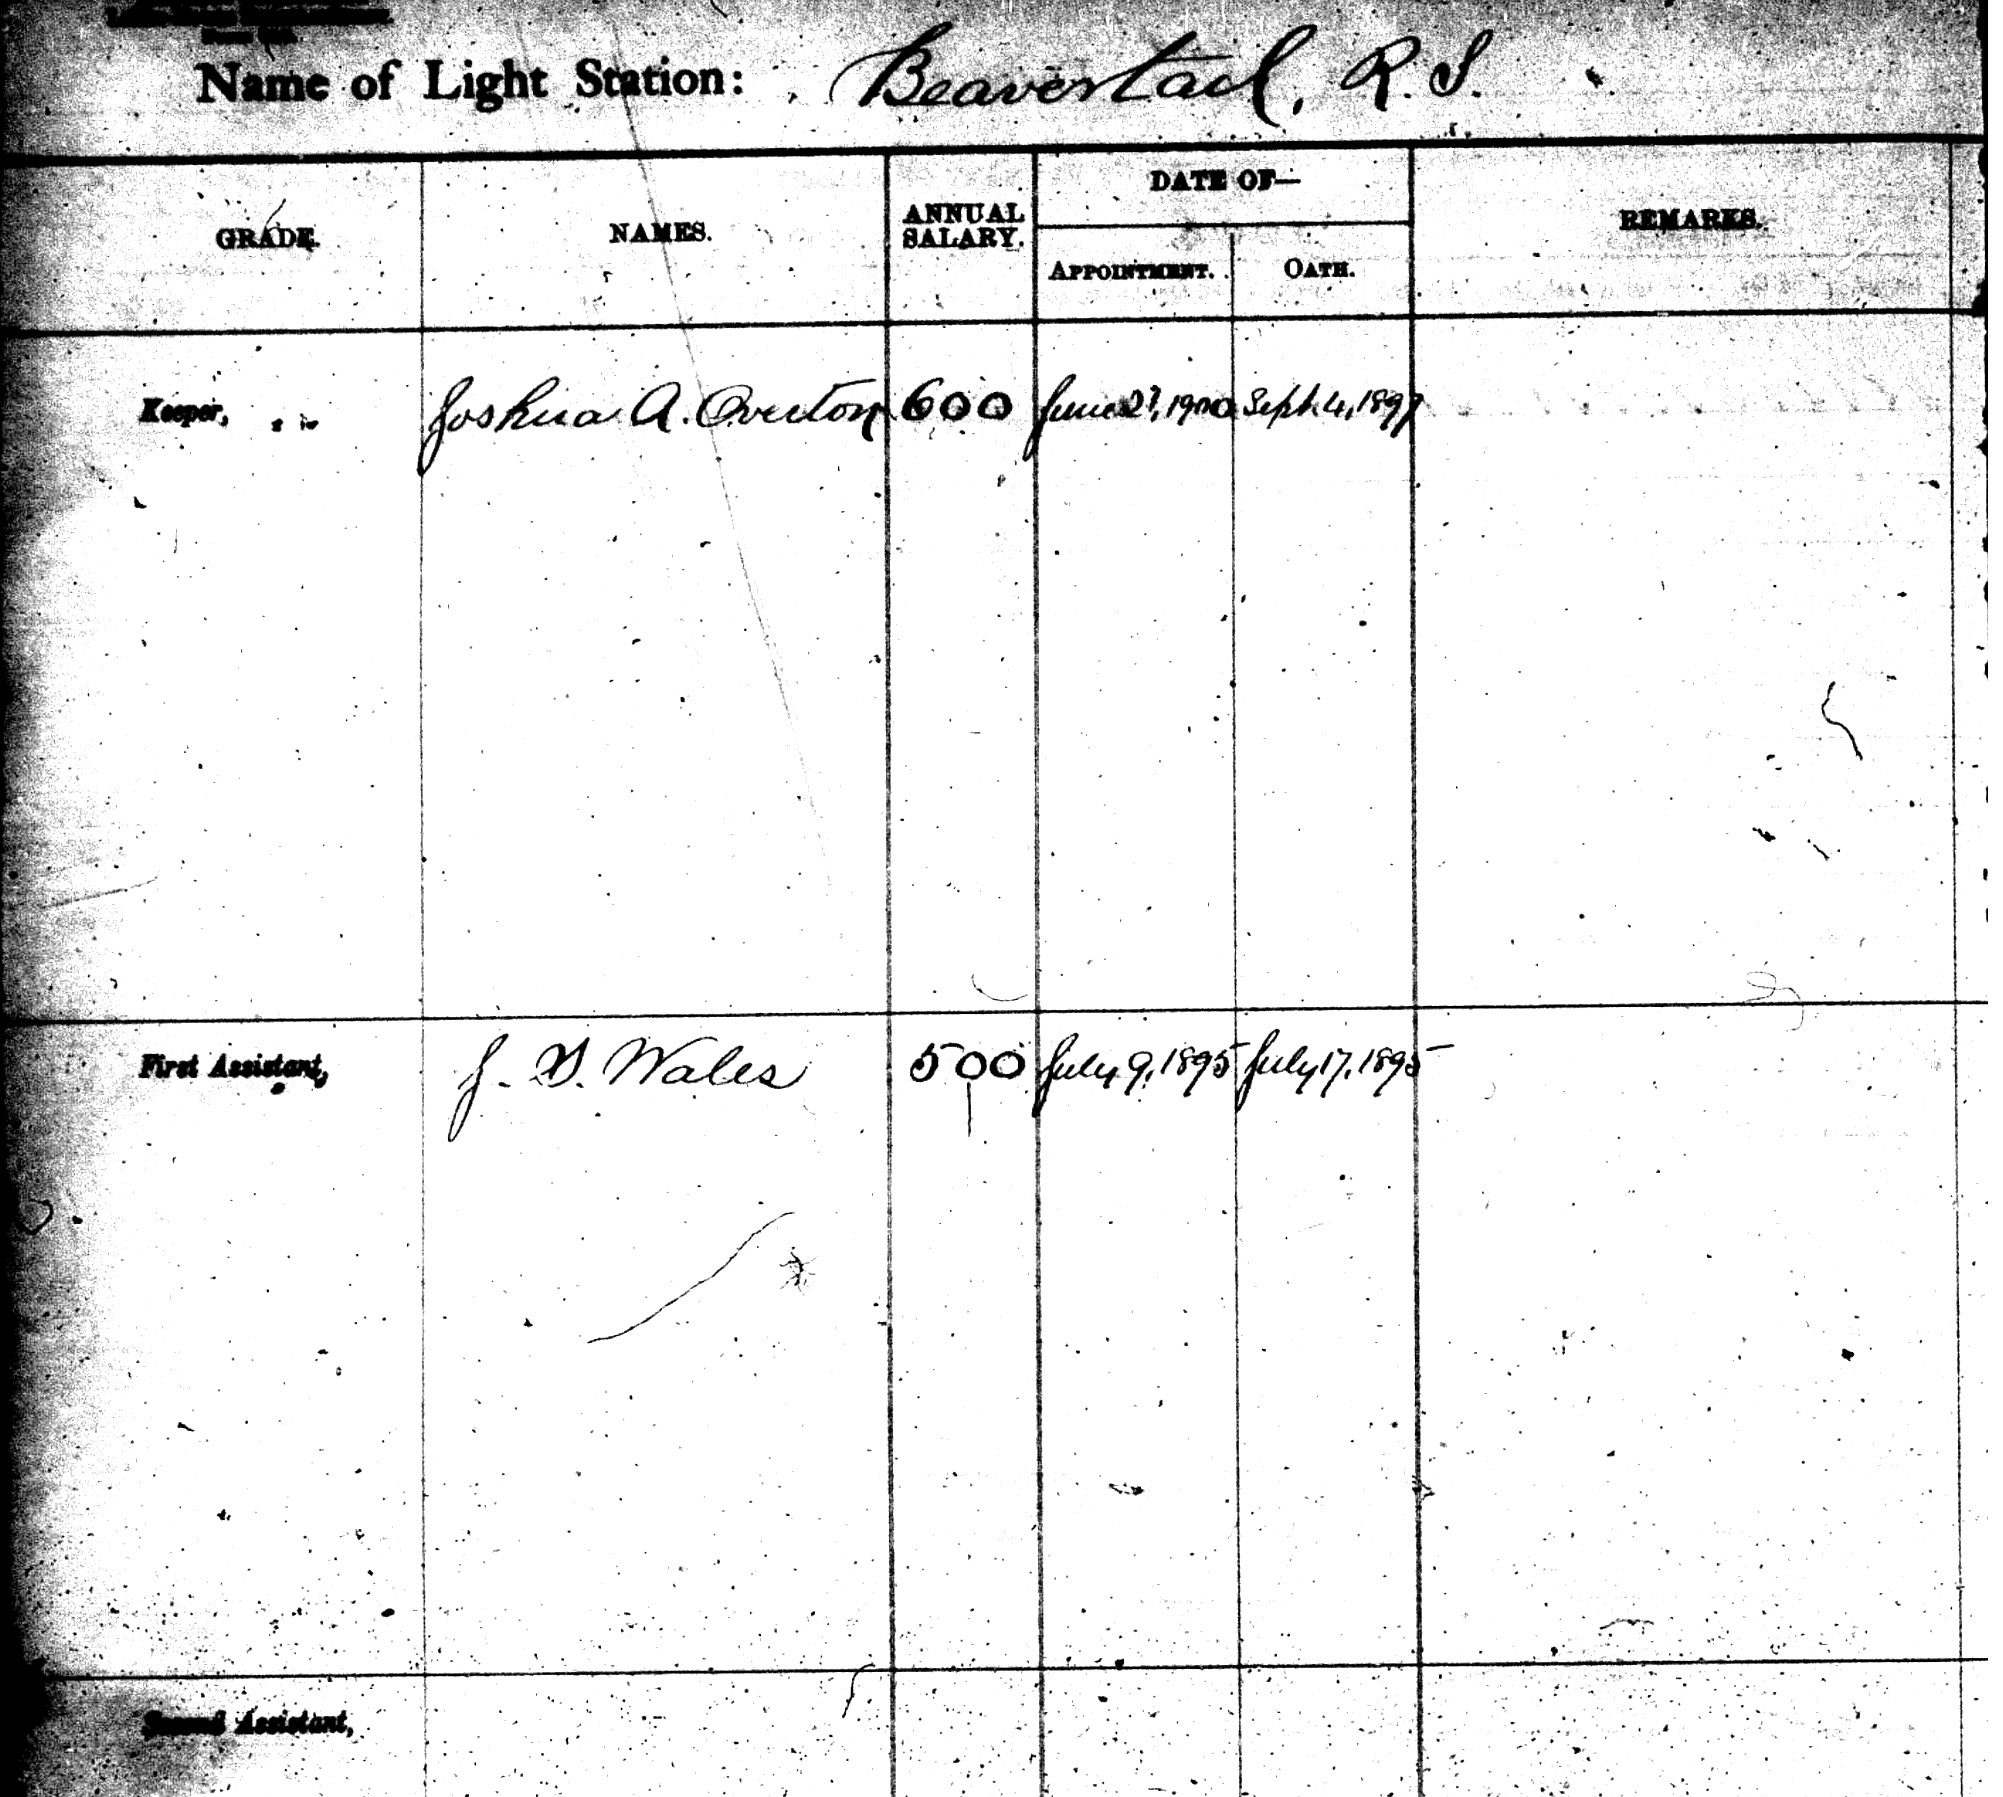 Name of Light Station: Beavertail, R. I.
GRADE. NAMES. ANNUAL SALARY. DATE OF— REMARKS.
APPOINTMENT. OATH.
Keeper, Joshua A. Overton 600 June 1900 Sept. 4, 1897
First Assistant, J. S. Wales 500 July 9, 1895 July 17, 1895
Second Assistant,